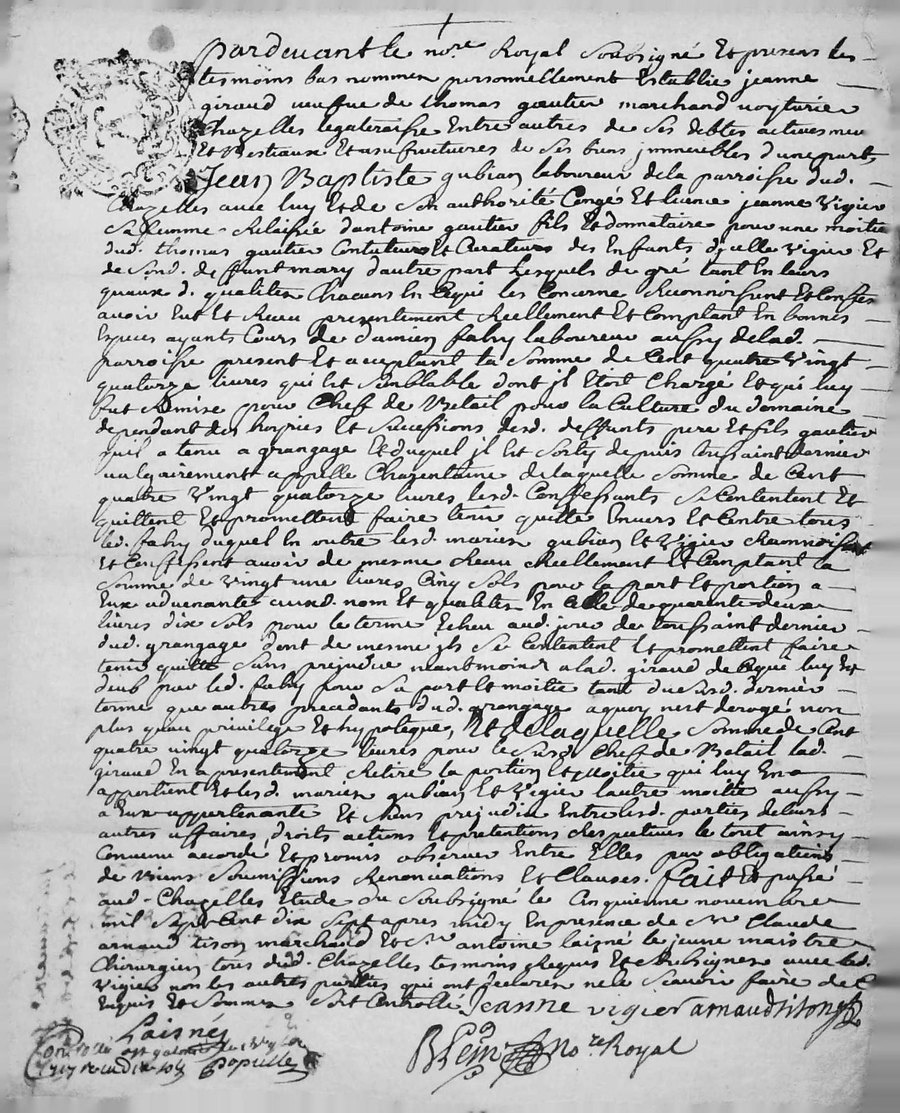 Pardevant le nore Royal Soubsigné Et presens les
tesmoins bas nommen personnellement Establie jeanne
giraud veuffue de thomas gautier marchand voyturier
Chazelles legateraisse Entre autres de ses debtes actives meu
Et Bestiaux Et usufructuires de ses biens jmmeubles d'une part
Jean Baptiste gubian laboureur dela parroisse dud.
Chazelles avec luy Et de son authorité Congé Et licence jeanne Vigier
sa femme Relaissée dantoine gautier fils Et donnataire pour une moitie
dud. thomas gautier Et Curateurs des Enfants d'jcelle Vigier Et
de Sond. deffunt mary dautre part Lesquels de gré tant En leurs
quaux d. qualites Chacuns En Cequi les Concerne Reconnoissent Et Confes
avoir Eut Et Receu presentement Reellement Et Comptant En bonnes
Especes ayants Cours de damien fahy laboureur aussy delad.
parroisse present Et acceptant la Somme de Cent quatre Vingt
quatorze livres qui Est Semblable dont jl Etoit Chargé Et qui luy
fut Remise pour Chef de Betail pour la Culture du domaine
dependant des hoyries Et Sucessions desd. deffunts pere Et fils gautier
quil a tenu a grangage Et duquel jl Est Sorty depuis toussaint dernier
vulgairement appellé Charentaine delaquelle Somme de Cent
quatre Vingt quatorze livres lesd. Confessants se Contentent Et
quittent Et promettent faire tenir quitte Envers Et Contre tous
led. fahy duquel En outre lesd. maries gubian Et Vigier Reconnoissent
Et Confessent avoir de mesme Receu Reellement Et Comptant la
Somme de Vingt une livres Cinq Sols pour la part Et portion a
Eux advenante auxd. nom Et qualites En Celle de quarente deux
livres dix Sols pour le terme Echeu aud. jour de toussaint dernier
dud. grangage dont de mesme jls se Contentent Et promettent faire
tenir quitte Sans prejudice neantmoins alad. giraud de Cequi luy Est
deub par led. fahy pour Sa part Et moitie tant du Susd. dernier
terme que autres precedants dud. grangage aquoy nest derogé non
plus quau privilege Et hypoteque, Et delaquelle Somme de Cent
quatre vingt quatorze livres pour le Susd. Chef de Betail lad.
giraud En a presentement Retiré la portion Et moitie qui luy En a
appartient Et lesd. maries gubian Et Vigier lautre moitie aussy
a Eux appartenante Et Sans prejudice Entre lesd. parties de leurs
autres affaires, droits actions Et pretentions Respectives le tout ainsy
Convenu accordé Et promis observer Entre Elles par obligations
de biens Soumissions Renonciations Et Clauses. fait Et passé
aud. Chazelles Etude du Soubsigné le Cinquieme novembre
mil Sept Cent dix Sept apres midy En presence de Sr Claude
arnaud tison marchand Et Sr antoine laisné le jeune maistre
Chirurgien tous dud. Chazelles tesmoins Requis Et Soubsignes avec lad.
Vigier non les autres parties qui ont declares ne le Scavoir faire de Ce
Enquis Et Sommes Soit Controllé Jeanne vigier arnaud tison
Laisné
nore Royal